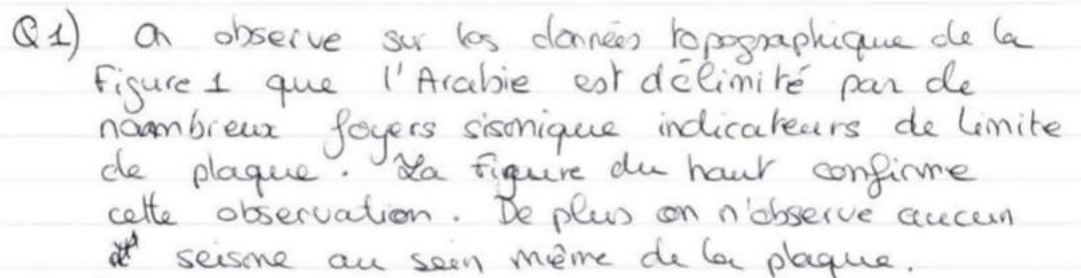 Q1) On observe sur les données topographique de la
Figure 1 que l'Arabie est délimité par de
noombreux foyers sismique indicateurs de limite
de plaque. La figure du haut confirme
cette observation. De plus on n'observe aucun
seisme au sein même de la plaque.